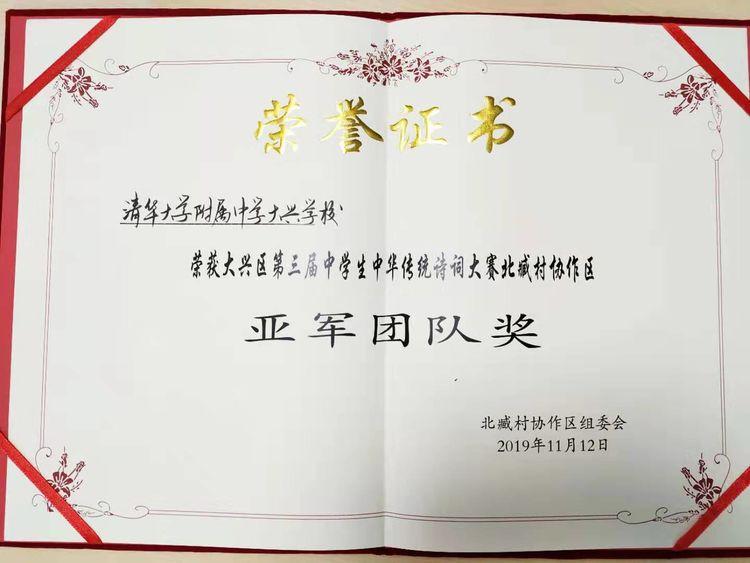 荣誉证书
清华大学附属中学大兴学校
荣获大兴区第三届中学生中华传统诗词大赛北臧村协作区
亚军团队奖
北臧村协作区组委会
2019年11月12日